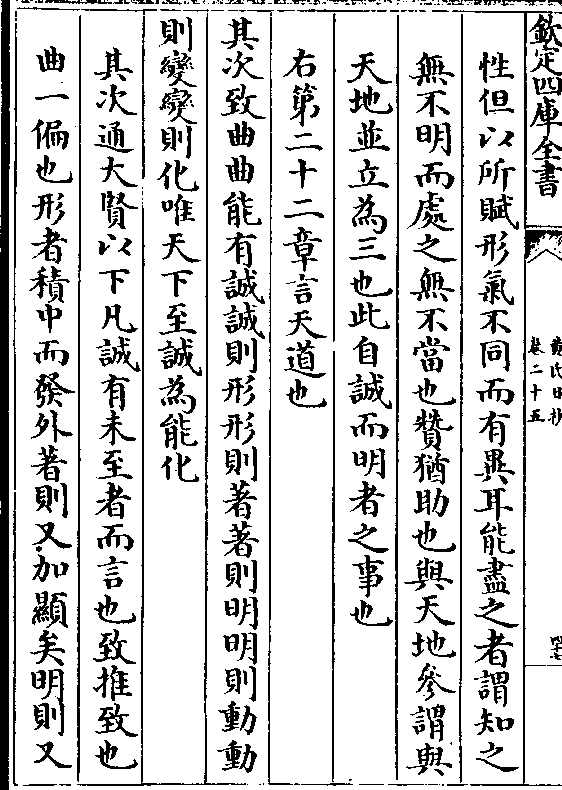 欽定四庫全書
黄氏日抄
卷二十五
性但以所賦形氣不同而有異耳能盡之者謂知之
無不明而處之無不當也贊猶助也與天地參謂與
天地並立為三也此自誠而明者之事也
右第二十二章言天道也
其次致曲曲能有誠誠則形形則著著則明明則動動
則變變則化唯天下至誠為能化
其次通大賢以下凡誠有未至者而言也致推致也
曲一偏也形者積中而發外著則又加顯矣明則又